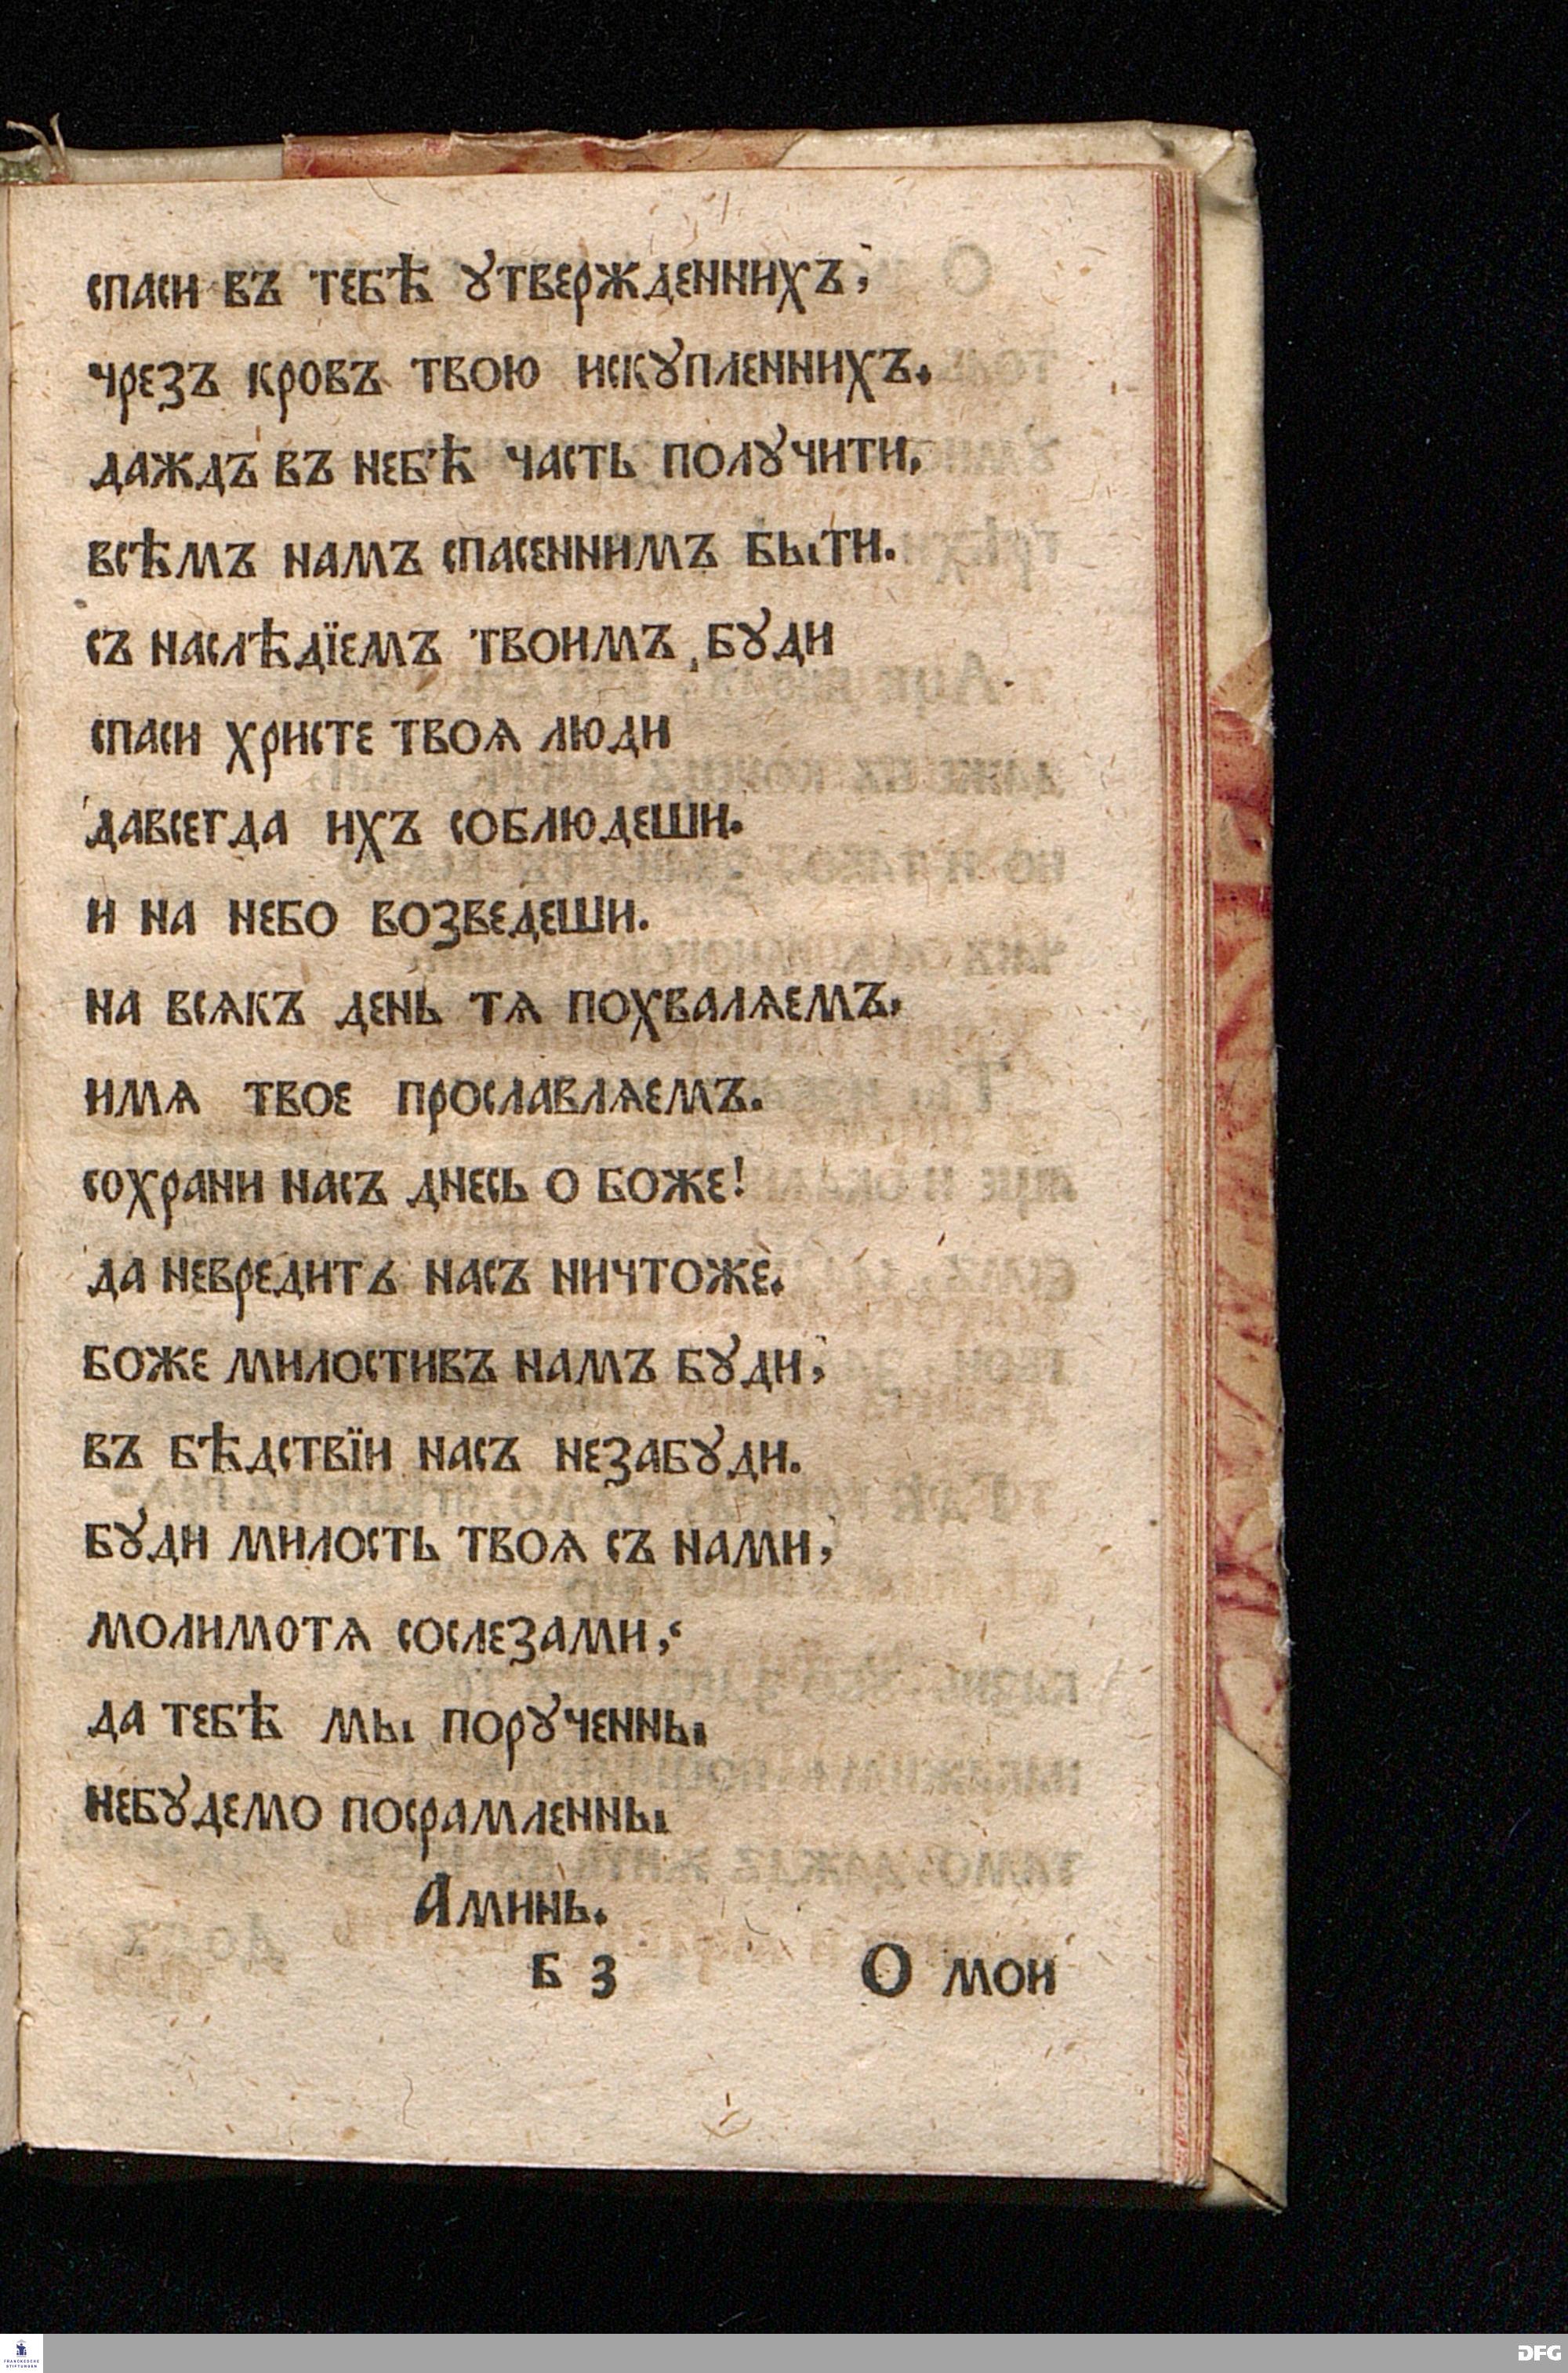 спаси въ тебѣ ꙋтвержденнихъ,
чрезъ кровъ твою искꙋпленнихъ.
даждъ въ небѣ часть полꙋчити,
всѣмъ намъ спасеннимъ быти.
съ наслѣдїемъ твоимъ, бꙋди
спаси христе твоѧ люди
давсегда ихъ соблюдеши.
и на небо возведеши.
на всѧкъ день тѧ похвалѧемъ,
имѧ твое прославлѧемъ.
сохрани насъ днесь о боже!
да невредитъ насъ ничтоже.
боже милостивъ намъ бꙋди,
въ бѣдствїи насъ незабꙋди.
бꙋди милость твоѧ съ нами,
молимотѧ сослезами,
да тебѣ мы порꙋченны
небꙋдемо посрамленны
Аминь.
б 3 О мои
FRANCKESCHE STIFTUNGEN DFG